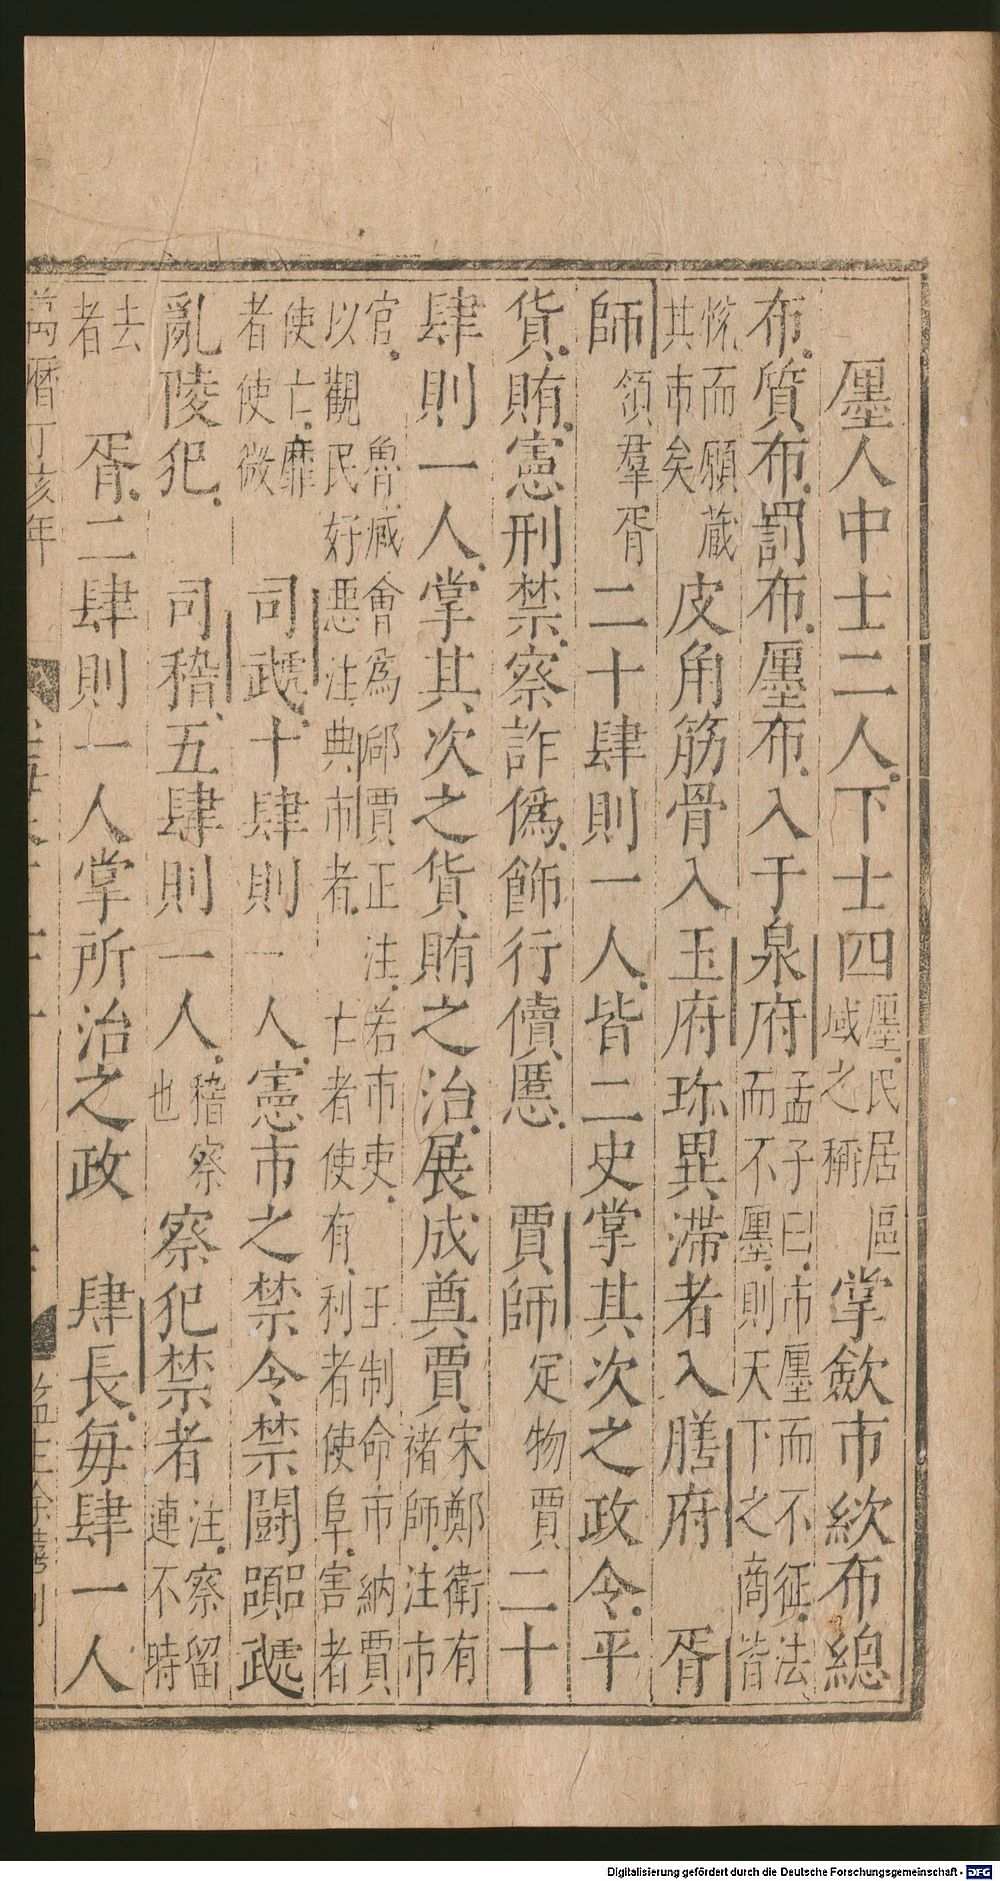 廛人中士二人下士四廛民居區域之稱掌斂市絘布總
布質布罰布廛布入于泉府孟子曰市廛而不征法而不廛則天下之商皆
悅而願藏其市矣皮角筋骨入玉府珎異滯者入膳府胥
師領羣胥二十肆則一人皆二史掌其次之政令平
貨賄憲刑禁察詐偽飾行儥慝賈師定物賈二十
肆則一人掌其次之貨賄之治展成奠賈宋鄭衛有褚師注市
官魯臧會為郈賈正注若市吏王制命市納賈以觀民好惡注典市者亡者使有利者使阜害者
使亡靡者使微司虣十肆則一人憲市之禁令禁鬬囂虣
亂陵犯司稽五肆則一人稽察也察犯禁者注察留連不時
去者胥二肆則一人掌所治之政肆長每肆一人
萬曆丁亥年
監生徐
刊
Digitalisierung gefördert durch die Deutsche Forschungsgemeinschaft - DFG